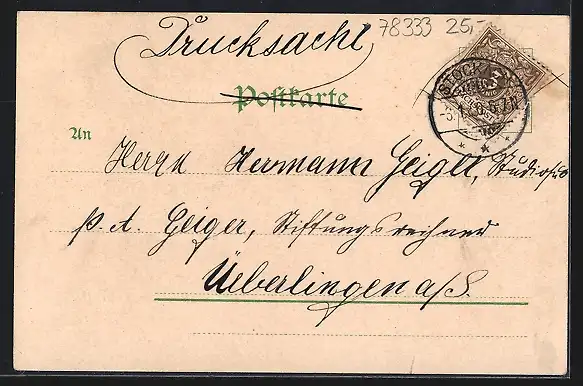 Drucksache
78333 25,-
Postkarte
STOCK
5-6N
3
An
Herrn Hermann Geiger, Studiosus
p. A. Geiger, Stiftungsrechner
Überlingen a/S.